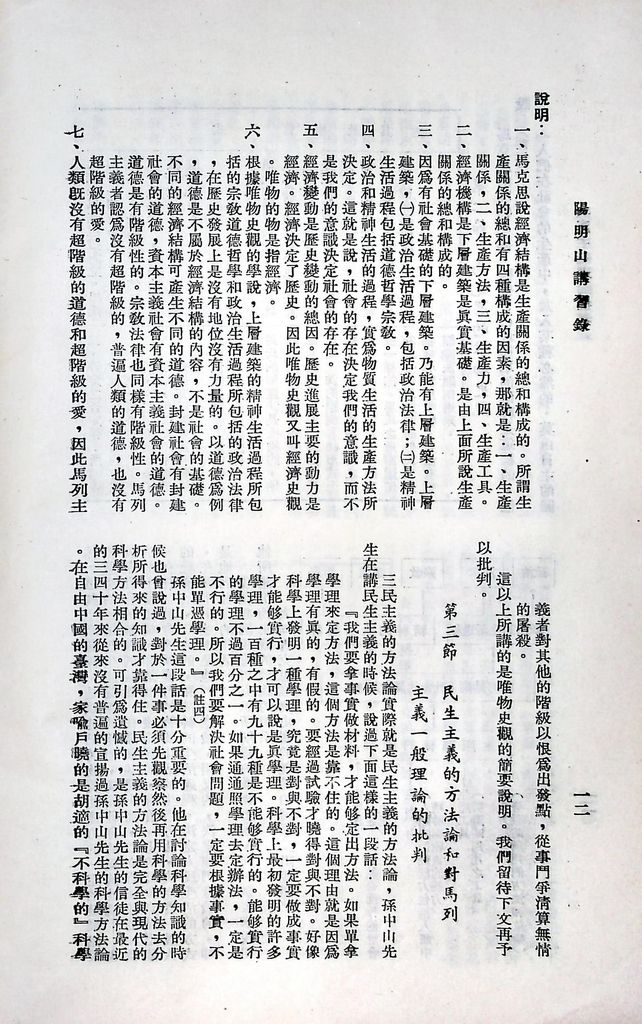 陽明山講習錄
一二
說明：
一、馬克思說經濟結構是生產關係的總和構成的。所謂生
產關係的總和有四種構成的因素，那就是：一、生產
關係，二、生產方法，三、生產力，四、生產工具。
二、經濟機構是下層建築是眞實基礎。是由上面所說生產
關係的總和構成的。
三、因爲有社會基礎的下層建築。乃能有上層建築。上層
建築，㈠是政治生活過程，包括政治法律；㈡是精神
生活過程包括道德哲學宗敎。
四、政治和精神生活的過程，實爲物質生活的生產方法所
決定。這就是說，社會的存在決定我們的意識，而不
是我們的意識決定社會的存在。
五、經濟變動是歷史變動的總因。歷史進展主要的動力是
經濟。經濟決定了歷史。因此唯物史觀又叫經濟史觀
。唯物的物是指經濟。
六、根據唯物史觀的學說，上層建築的精神生活過程所包
括的宗敎道德哲學和政治生活過程所包括的政治法律
，在歷史發展上是沒有地位沒有力量的。以道德爲例
，道德是不屬於經濟結構的內容，不是社會的基礎。
不同的經濟結構可產生不同的道德。封建社會有封建
社會的道德，資本主義社會有資本主義社會的道德。
道德是有階級性的。宗敎法律也同樣有階級性。馬列
主義者認爲沒有超階級的，普遍人類的道德，也沒有
超階級的愛。
七、人類旣沒有超階級的道德和超階級的愛，因此馬列主
義者對其他的階級以恨爲出發點，從事鬥爭清算無情
的屠殺。
這以上所講的是唯物史觀的簡要說明。我們留待下文再予
以批判。
第三節　民生主義的方法論和對馬列
主義一般理論的批判
三民主義的方法論實際就是民生主義的方法論，孫中山先
生在講民生主義的時候，說過下面這樣的一段話：
『我們要拿事實做材料，才能够定出方法。如果單拿
學理來定方法，這個方法是靠不住的。這個理由就是因爲
學理有眞的，有假的。要經過試驗才曉得對與不對。好像
科學上發明一種學理，究竟是對與不對，一定要做成事實
才能够實行，才可以說是眞學理。科學上最初發明的許多
學理，一百種之中有九十九種是不能够實行的。能够實行
的學理不過百分之一。如果通通照學理去定辦法，一定是
不行的。所以我們要解決社會問題，一定要根據事實，不
能單憑學理。』（註四）
孫中山先生這段話是十分重要的。他在討論科學知識的時
候也曾說過，對於一件事必須先觀察然後再用科學的方法去分
析所得來的知識才靠得住。民生主義的方法論是完全與現代的
科學方法相合的。可引爲遺憾的，是孫中山先生的信徒在最近
的三四十年來從來沒有普遍的宣揚過孫中山先生的科學方法論
。在自由中國的臺灣，家喩戶曉的是胡適的『不科學的』科學